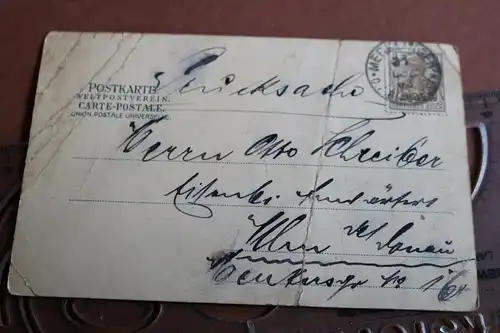 Drucksache
POSTKARTE
WELTPOSTVEREIN.
CARTE-POSTALE.
UNION POSTALE UNIVERSELLE.
Herrn Otto Schreiber
Eisenb. Anwärter
Ulm a/ Donau
No 16